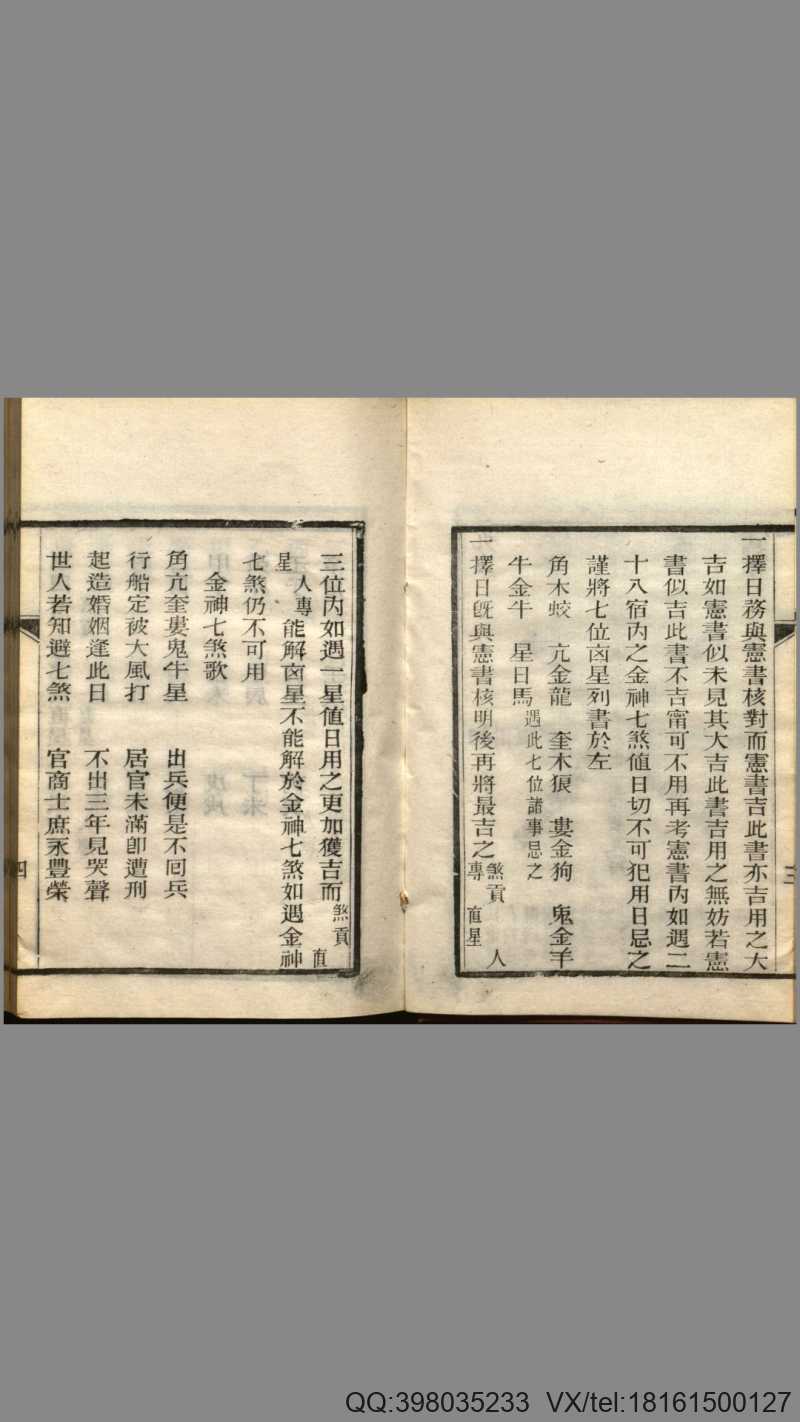 一擇日務與憲書核對而憲書吉此書亦吉用之大
吉如憲書似未見其大吉此書吉用之無妨若憲
書似吉此書不吉甯可不用再考憲書內如遇二
十八宿內之金神七煞值日切不可犯用日忌之
謹將七位凶星列書於左
角木蛟 亢金龍 奎木狼 婁金狗 鬼金羊
牛金牛 星日馬 遇此七位諸事忌之
一擇日既與憲書核明後再將最吉之煞貢 人專 直星
三
三位內如遇一星值日用之更加獲吉而煞貢 直
星 人專 能解凶星不能解於金神七煞如遇金神
七煞仍不可用
金神七煞歌
角亢奎婁鬼牛星 出兵便是不回兵
行船定被大風打 居官未滿卽遭刑
起造婚姻逢此日 不出三年見哭聲
世人若知避七煞 官商士庶永豐榮
四
QQ:398035233 VX/tel:18161500127